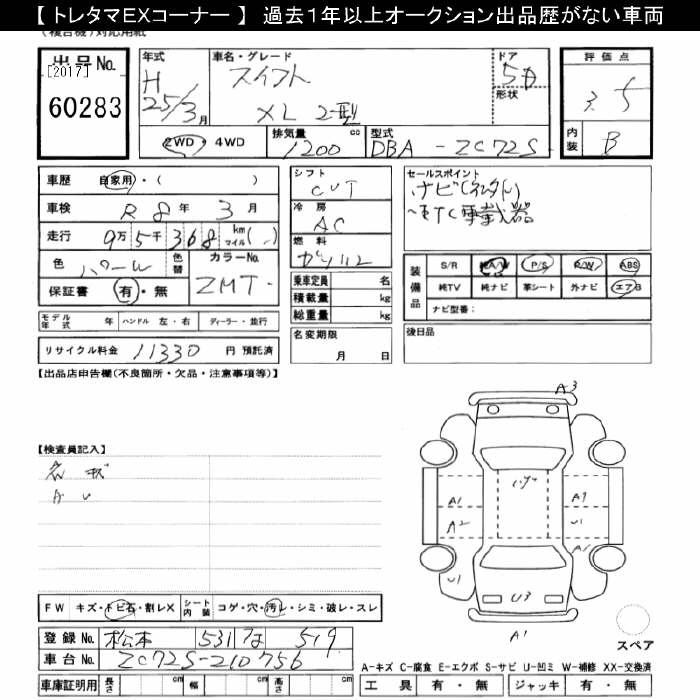 【 トレタマEXコーナー 】 過去1年以上オークション出品歴がない車両
出品No.
[2017]
60283
年式
H
25/3月
車名・グレード
スイフト
XL 2型
ドア
5D
形状
評価点
3.5
2WD・4WD
排気量
1200 cc
型式
DBA - ZC72S
内装
B
車歴 自家用・( )
車検 R8年3月
走行 9万5千368 km マイル( )
色
色替
カラーNo.
ZMT
保証書 有・無
シフト
CVT
冷房
AC
燃料
ガソリン
乗車定員 名
積載量 kg
総重量 kg
名変期限
月 日
セールスポイント
ETC車載器
装備品
S/R 純A/W P/S P/W ABS
純TV 純ナビ 革シート 外ナビ エアB
ナビ型番:
後日品
モデル年式 年 ハンドル 左・右 ディーラー・並行
リサイクル料金 11330 円 預託済
【出品店申告欄(不良箇所・欠品・注意事項等)】
【検査員記入】
A U
A3
A1
A2
U1
U1
U3
A1
FW キズ・トビ石・割レX シート内装 コゲ・穴・汚レ・シミ・破レ・スレ
登録No. 松本 531 な 519
車台No. ZC72S-210756
スペア
A-キズ C-腐食 E-エクボ S-サビ U-凹ミ W-補修 XX-交換済
車庫証明用 長さ cm 幅 cm 高さ cm 工具 有・無 ジャッキ 有・無